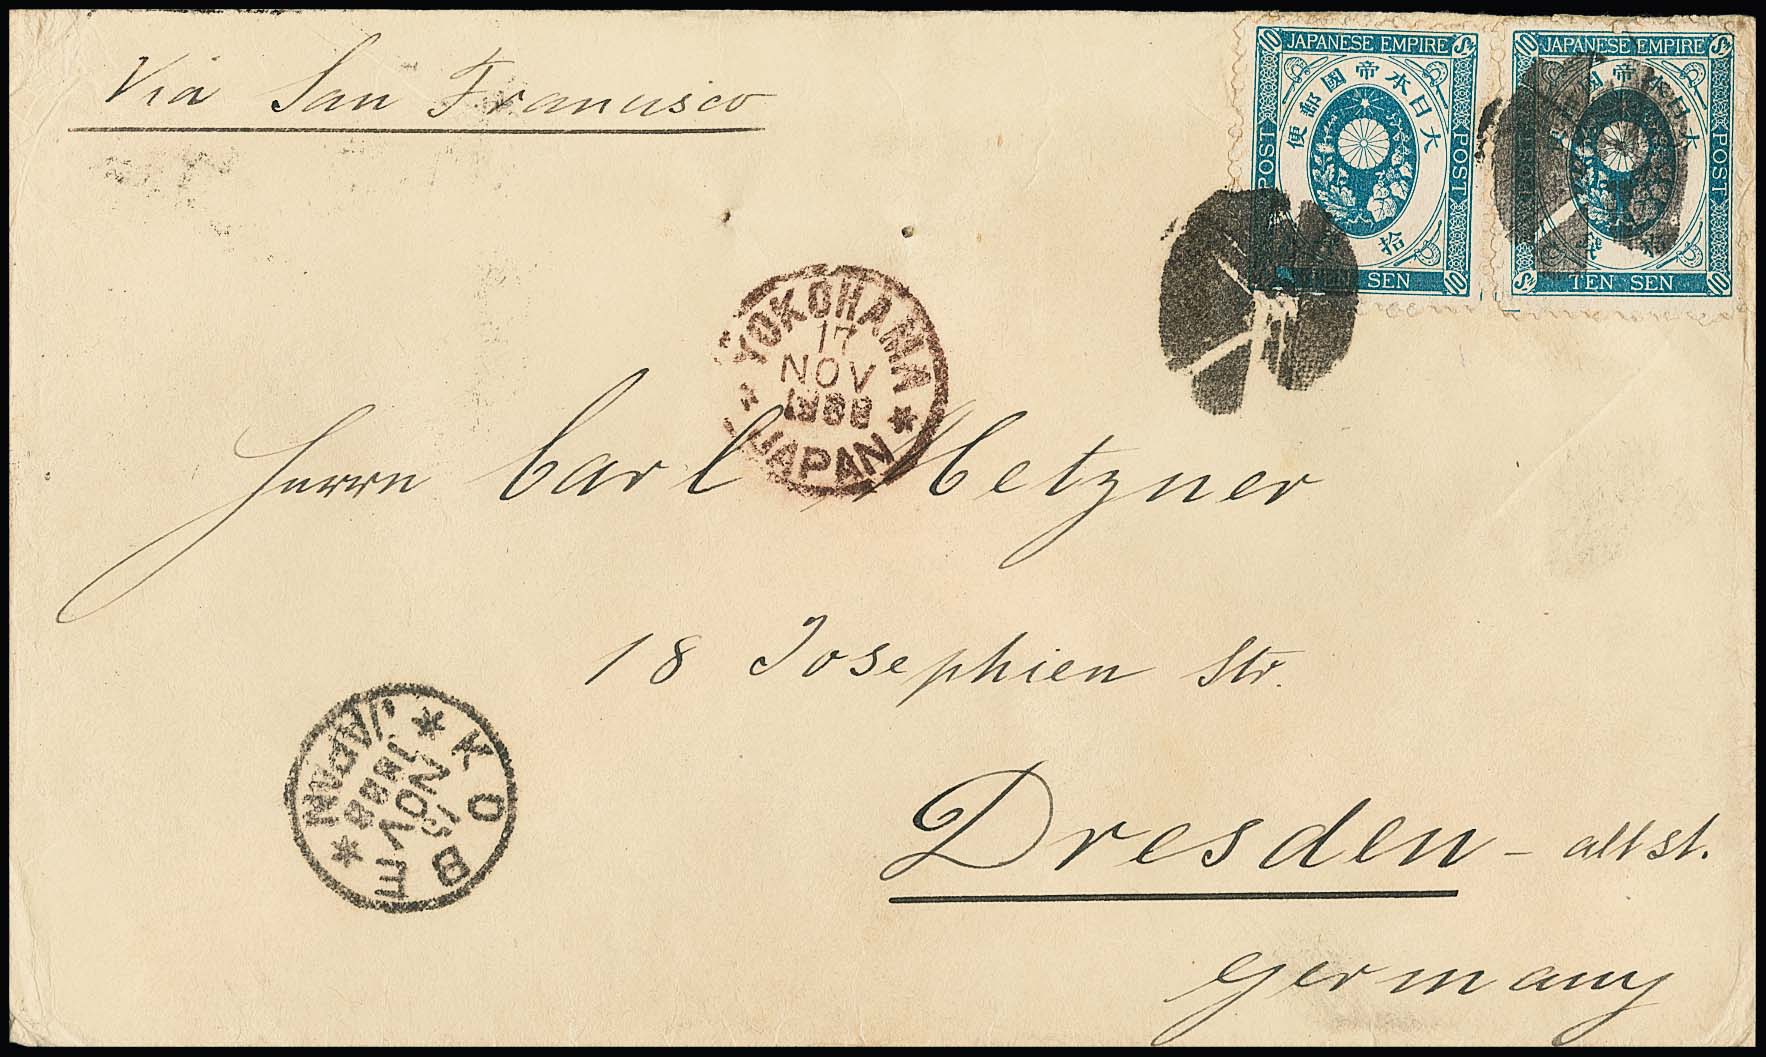 Via San Francisco
10 JAPANESE EMPIRE Sn
大日本帝國郵便
POST POST
拾
SEN 10
10 JAPANESE EMPIRE Sn
大日本帝國
POST
錢
Sn TEN SEN 10
YOKOHAMA
17
NOV
1888
JAPAN
Herrn Carl Metzner
18 Josephien Str.
KOBE
15
NOV
1888
JAPAN
Dresden - altst.
Germany